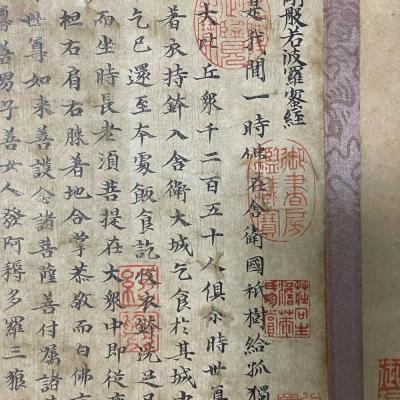 剛般若波羅蜜經
是我聞一時佛在舍衛國祇樹給孤獨
大比丘眾千二百五十人俱尒時世尊
著衣持鉢入舍衛大城乞食於其城中
乞已還至本處飯食訖收衣鉢洗足
而坐時長老須菩提在大眾中即從座
袒右肩右膝著地合掌恭敬而白佛
世尊如來善護念諸菩薩善付囑諸
善男子善女人發阿耨多羅三藐
御書房鑑藏寶